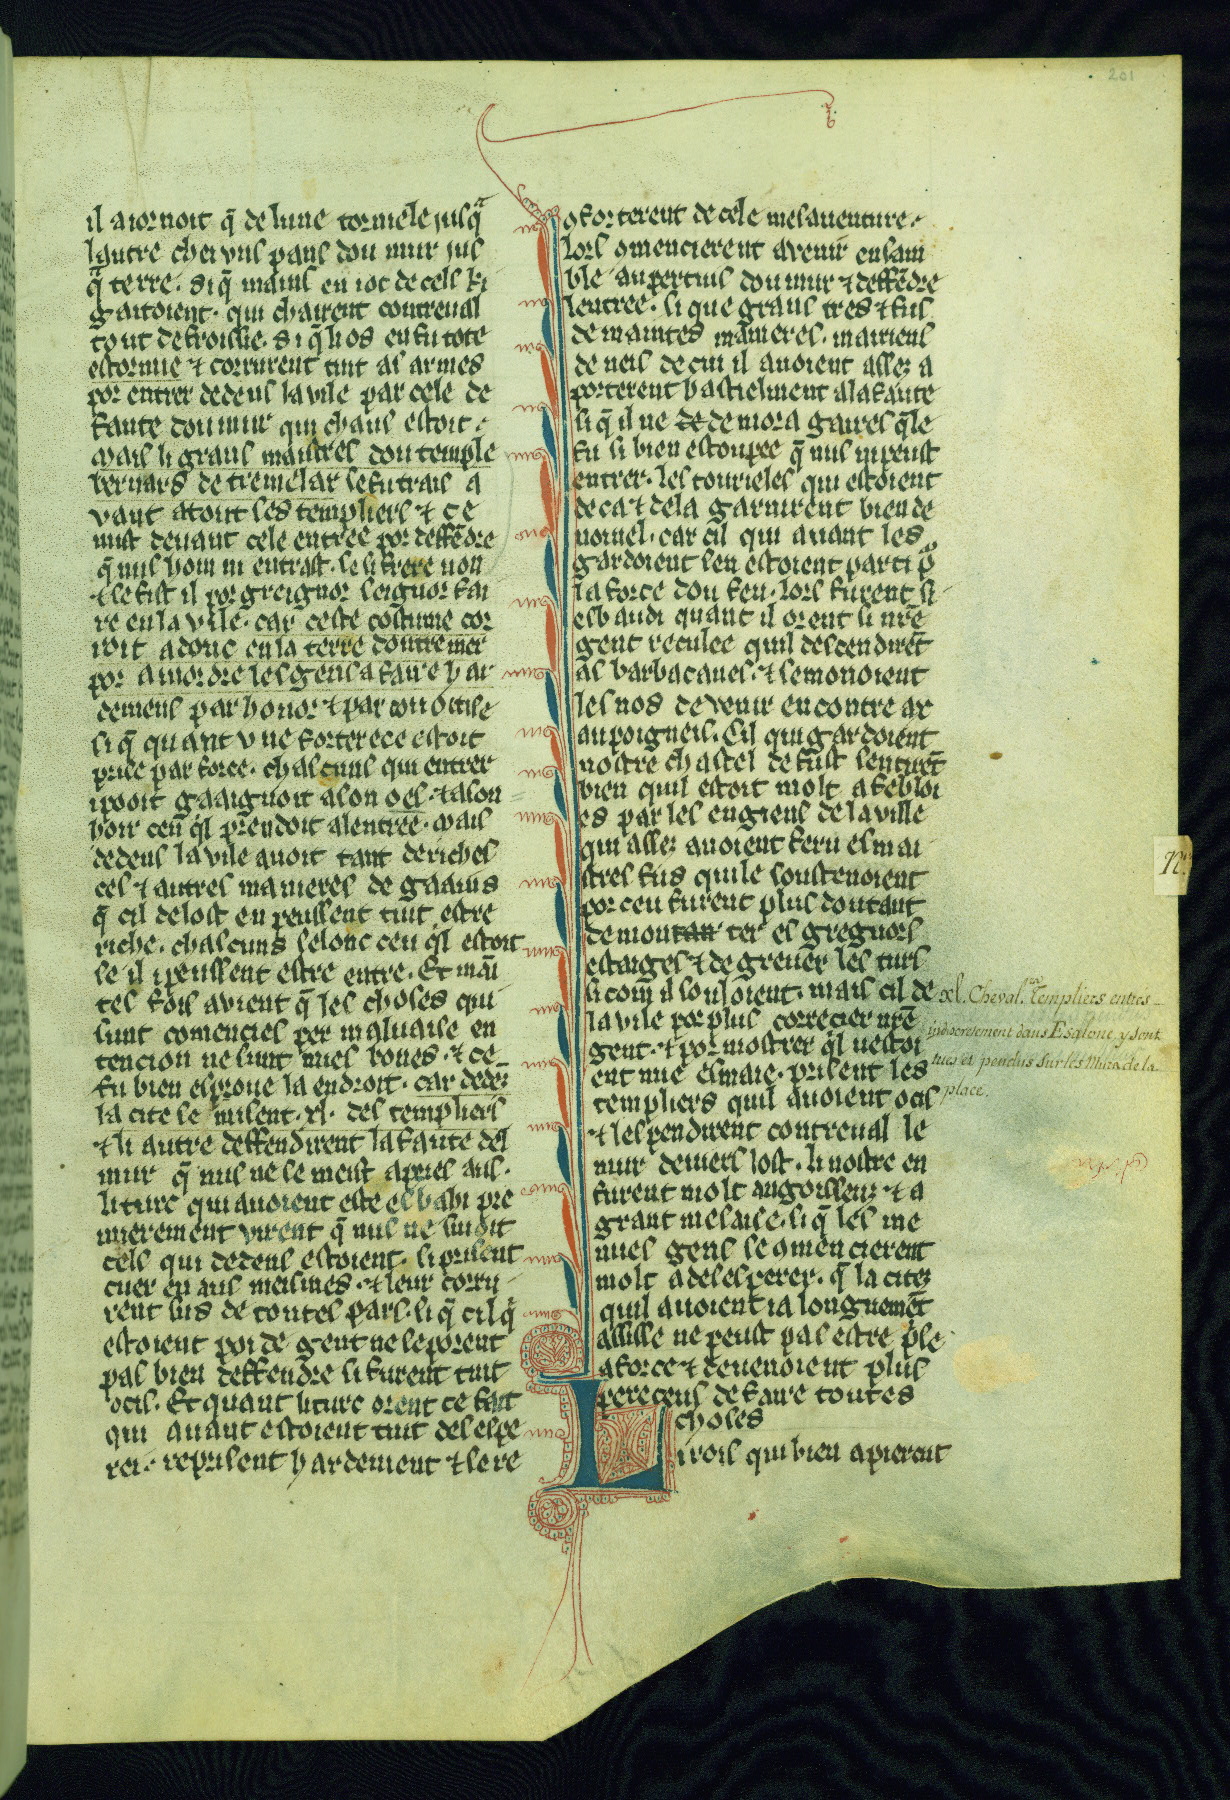 201
il aiornoit q̄ de lune tornele jusq̄
lautre cheivns pans dou mur jus
q̄ terre. si q̄ mains en iot de cels ki
gaitoient. qui chairent contreual
tout defroissie. si q̄ li os en fu tote
estormie ⁊ corrurent tuit as armes
por entrer dedens la vile par cele de
faute dou mur qui chaus estoit.
Mais li grans maistres dou temple
bernars de tremelar se fu trais a
vant atout ses templiers ⁊ ce
mist deuant cele entree por deffēdre
q̄ nus hom ni entrast. se si frere non
⁊ se fist il por greignor seignor fai
re en la vile. car ceste costume cor
roit adonc en la terre doutremer
por amordre les gens a faire har
demens par honor ⁊ par couoitise
si q̄ quant vne forterece estoit
prise par force. chascuns qui entrer
ipooit gaaignoit a son oes. ⁊ a son
hoir ceu q̄l prendoit alentree. Mais
dedens la vile auoit tant de riches
ces ⁊ autres manieres de gaains
q̄ cil de lost en peussent tuit estre
riche. chascuns selonc ceu q̄l estoit
se il ipeussent estre entre. Et mai
tes fois auient q̄ les choses qui
sunt comencies per maluaise en
tencion ne sunt mies bones. ⁊ ce
fu bien esproue la endroit. car dedēz
la cite se misent .xl. des templiers
⁊ li autre deffendirent la faute del
mur q̄ nus ne se meist apries aus.
li turc qui auoient este esbahi pre
mierement virent q̄ nus ne siuoit
cels qui dedens estoient. si prisent
cuer en aus meismes. ⁊ leur corru
rent sus de toutes pars. si q̄ cil q̄
estoient poi de gent ne se porent
pas bien deffendre si furent tuit
ocis. Et quant li turc orent ce fait
qui auant estoient tuit desespe
rei. reprisent hardement ⁊ se re
oforterent de cele mesauenture.
lors omencierent a venir ensam
ble au pertuis dou mur ⁊ deffēdre
lentree. si que grans tres ⁊ fus
de maintes manieres. mairiens
de neis de cui il auoient assez a
porterent hastiement a la faute
si q̄ il ne de demora gaires q̄le
fu si bien estoupee q̄ nus ni peust
entrer. les tourieles qui estoient
de ca ⁊ de la garnirent bien de
nouuel. car cil qui auant les
gardoient sen estoient parti por
la force dou feu. lors furent si
esbaudi quant il orent si nr̄e
gent reculee quil descendirēt
as barbacanes. ⁊ semonoient
les nos de venir encontre ax
au poigneis. Cil qui gardoient
nostre chastel de fust sentirēt
bien quil estoit molt afebloi
es par les engiens de la ville
qui assez auoient feru es mai
stres fus qui le soustenoient
por ceu furent plus doutant
de montan ter es gregnors
estaiges ⁊ de greuer les turs
si com il souloient. mais cil de
la vile por plus correcier nr̄e
gent. ⁊ por mostrer q̄l nestoi
ent mie esmaie. prisent les
templiers quil auoient ocis
⁊ les pendirent contreual le
mur deuiers lost. li nostre en
furent molt angoisseuz ⁊ a
grant mesaise. si q̄ les me
nues gens se omencierent
molt a desesperer. q̄ la citez
quil auoient ia longuemēt
assisse ne peust pas estre p̄se
a force ⁊ deuenoient plus
pereceus de faire toutes
choses
Li rois qui bien apierceut
xl. Cheval.rs Templiers entrés
indiscretement dans Escalone, y sont
tués et pendus sur les Murs de la
place.